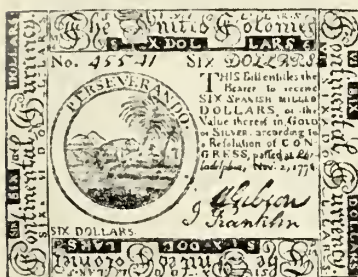 The United Colonies
SIX DOLLARS
No. 45541 SIX DOLLARS
THIS Bill entitles the
Bearer to receive
SIX SPANISH MILLED
DOLLARS, or the
Value thereof in GOLD
or SILVER, according to
a Resolution of CON-
GRESS, passed at
Nov. 2,
PERSEVERANDO.
SIX DOLLARS.
Continental Currency
SIX DOLLARS
The United Colonies
DOLLARS